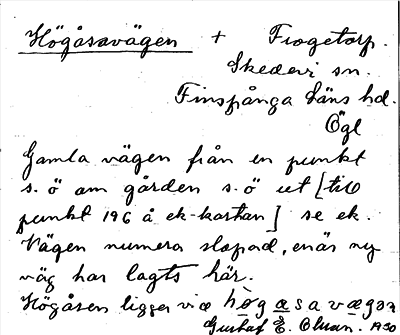 Högåsavägen + Frogetorp.
Skedevi sn.
Finspånga läns hd.
Ögl
Gamla vägen från en punkt
s. ö om gården s. ö ut [till
punkt 196 å ek-kartan] se ek.
Vägen numera slopad, enär ny
väg har lagts här.
Högåsen ligger vid högasavægən
Gustaf E Olsson. 1930